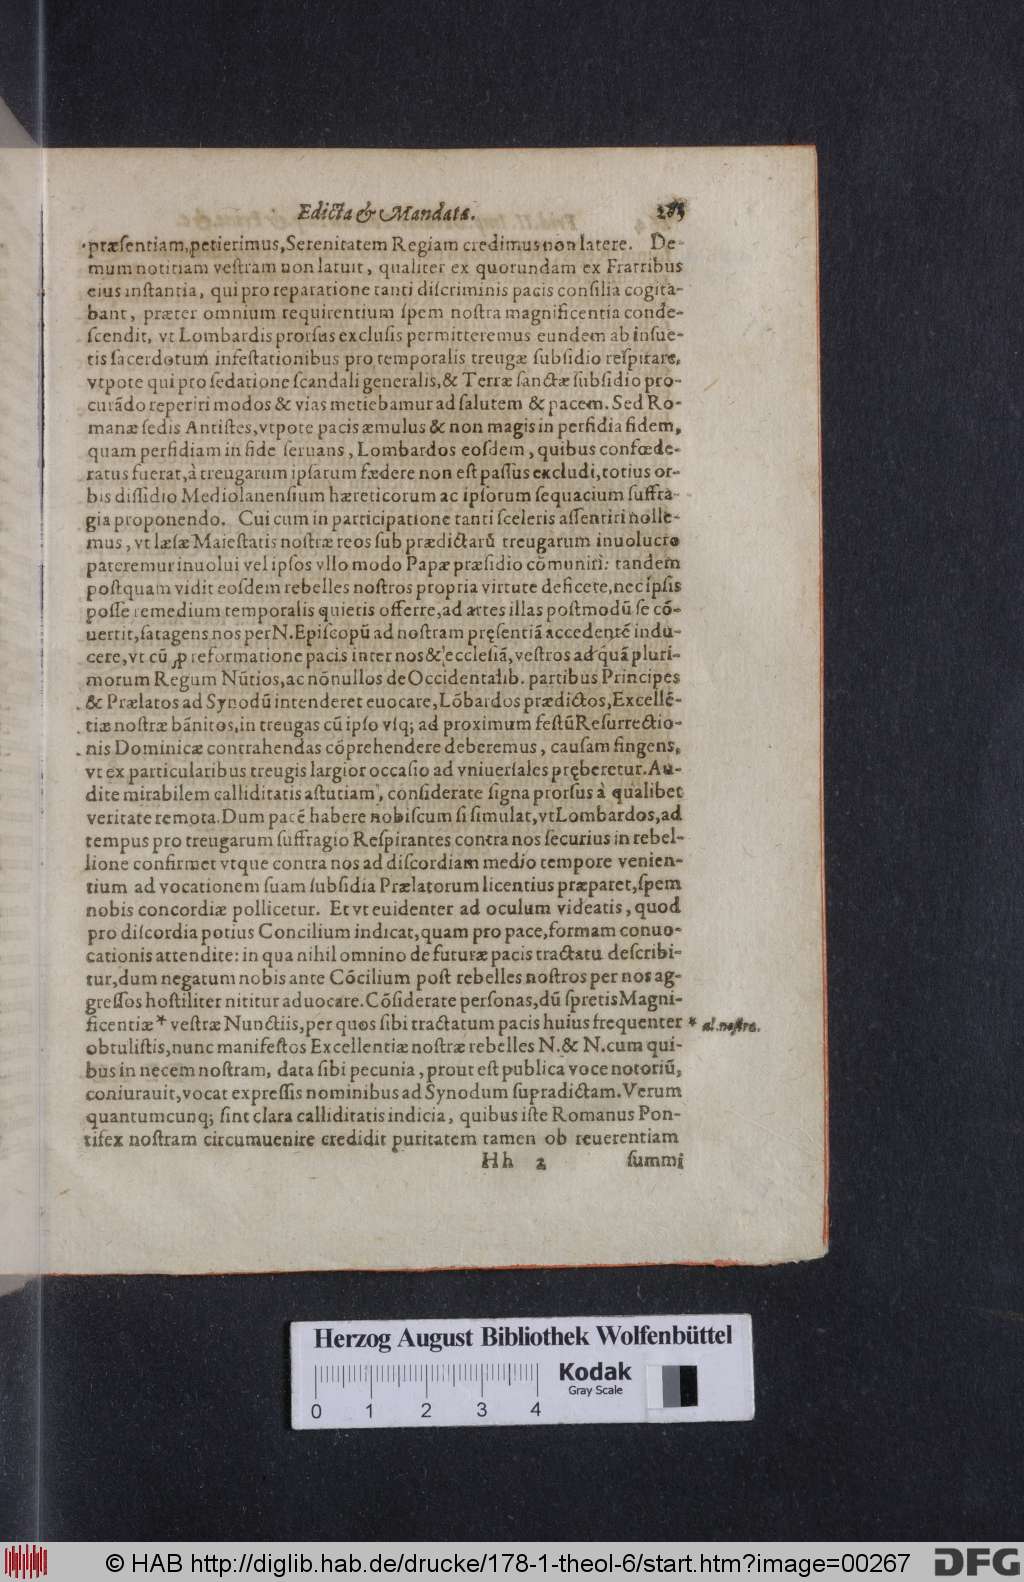 Edicta & Mandata.
præſentiam, petierimus, Serenitatem Regiam credimus non latere. De-
mum notitiam veſtram non latuit, qualiter ex quorundam ex Fratribus
eius inſtantia, qui pro reparatione tanti diſcriminis pacis conſilia cogita-
bant, præter omnium requirentium ſpem noſtra magnificentia conde-
ſcendit, vt Lombardis prorſus excluſis permitteremus eundem ab inſue-
tis ſacerdotum infeſtationibus pro temporalis treugæ ſubſidio reſpirare,
vtpote qui pro ſedatione ſcandali generalis, & Terræ ſanctæ ſubſidio pro-
curādo reperiri modos & vias metiebamur ad ſalutem & pacem. Sed Ro-
manæ ſedis Antiſtes, vtpote pacis æmulus & non magis in perfidia fidem,
quam perfidiam in fide ſeruans, Lombardos eoſdem, quibus confœde-
ratus fuerat, à treugarum ipſarum fædere non eſt paſſus excludi, totius or-
bis diſſidio Mediolanenſium hæreticorum ac ipſorum ſequacium ſuffra-
gia proponendo. Cui cum in participatione tanti ſceleris aſſentiri nolle-
mus, vt læſæ Maieſtatis noſtræ reos ſub prædictarū treugarum inuolucro
pateremur inuolui vel ipſos vllo modo Papæ præſidio cōmuniri: tandem
poſtquam vidit eoſdem rebelles noſtros propria virtute deficere, nec ipſis
poſſe remedium temporalis quietis offerre, ad artes illas poſtmodū ſe cō-
uertit, ſatagens nos per N. Epiſcopū ad noſtram pręſentiā accedentē indu-
cere, vt cū ꝓ reformatione pacis inter nos & eccleſiā, veſtros ad quā pluri-
morum Regum Nūtios, ac nōnullos de Occidentalib. partibus Principes
& Prælatos ad Synodū intenderet euocare, Lōbardos prædictos, Excellē-
tiæ noſtræ bānitos, in treugas cū ipſo vſq; ad proximum feſtū Reſurrectio-
nis Dominicæ contrahendas cōprehendere deberemus, cauſam fingens,
vt ex particularibus treugis largior occaſio ad vniuerſales pręberetur. Au-
dite mirabilem calliditatis aſtutiam, conſiderate ſigna prorſus à qualibet
veritate remota. Dum pacē habere nobiſcum ſi ſimulat, vt Lombardos, ad
tempus pro treugarum ſuffragio Reſpirantes contra nos ſecurius in rebel-
lione confirmet vtque contra nos ad diſcordiam medio tempore venien-
tium ad vocationem ſuam ſubſidia Prælatorum licentius præparet, ſpem
nobis concordiæ pollicetur. Et vt euidenter ad oculum videatis, quod
pro diſcordia potius Concilium indicat, quam pro pace, formam conuo-
cationis attendite: in qua nihil omnino de futuræ pacis tractatu deſcribi-
tur, dum negatum nobis ante Cōcilium poſt rebelles noſtros per nos ag-
greſſos hoſtiliter nititur aduocare. Cōſiderate perſonas, dū ſpretis Magni-
ficentiæ* veſtræ Nunctiis, per quos ſibi tractatum pacis huius frequenter * al. noſtra.
obtuliſtis, nunc manifeſtos Excellentiæ noſtræ rebelles N. & N. cum qui-
bus in necem noſtram, data ſibi pecunia, prout eſt publica voce notoriū,
coniurauit, vocat expreſſis nominibus ad Synodum ſupradictam. Verum
quantumcunq; ſint clara calliditatis indicia, quibus iſte Romanus Pon-
tifex noſtram circumuenire credidit puritatem tamen ob reuerentiam
Hh 2 ſummi
Herzog August Bibliothek Wolfenbüttel
Kodak
Gray Scale
0 1 2 3 4
© HAB http://diglib.hab.de/drucke/178-1-theol-6/start.htm?image=00267
DFG